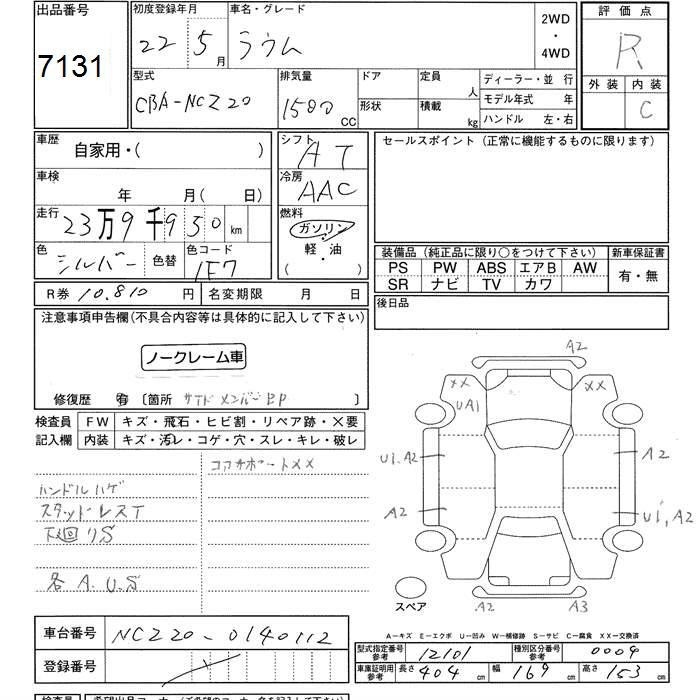 出品番号
7131
初度登録年月
22 5月
車名・グレード
ラウム
2WD
・
4WD
評価点
R
外装 内装
C
型式
CBA-NCZ20
排気量
1500 CC
ドア
形状
定員 人
積載 kg
ディーラー・並 行
モデル年式 年
ハンドル 左・右
車歴
自家用・( )
車検
年 月( 日)
走行
23万9千950 km
色
シルバー
色替
色コード
1F7
シフト
AT
冷房
AAC
燃料
ガソリン
軽・油
( )
セールスポイント(正常に機能するものに限ります)
装備品(純正品に限り○をつけて下さい)
PS PW ABS エアB AW
SR ナビ TV カワ
新車保証書
有・無
後日品
R券 10,810 円
名変期限 月 日
注意事項申告欄(不具合内容等は具体的に記入して下さい)
ノークレーム車
修復歴 有 [箇所 サイドメンバー BP ]
検査員
記入欄
FW キズ・飛石・ヒビ割・リペア跡・×要
内装 キズ・汚レ・コゲ・穴・スレ・キレ・破レ
コアサポートXX
ハンドルハゲ
スタッドレスT
下廻りS
各 A.U.S
A2
XX
UA1
XX
U1.A2
A2
A2
U1,A2
A2
A3
スペア
車台番号
NCZ20-0140112
登録番号
A-キズ E-エクボ U-凹み W-補修跡 S-サビ C-腐食 XX-交換済
型式指定番号
参考
12101
種別区分番号
参考
0004
車庫証明用
参考
長さ 404 cm
幅 169 cm
高さ 153 cm